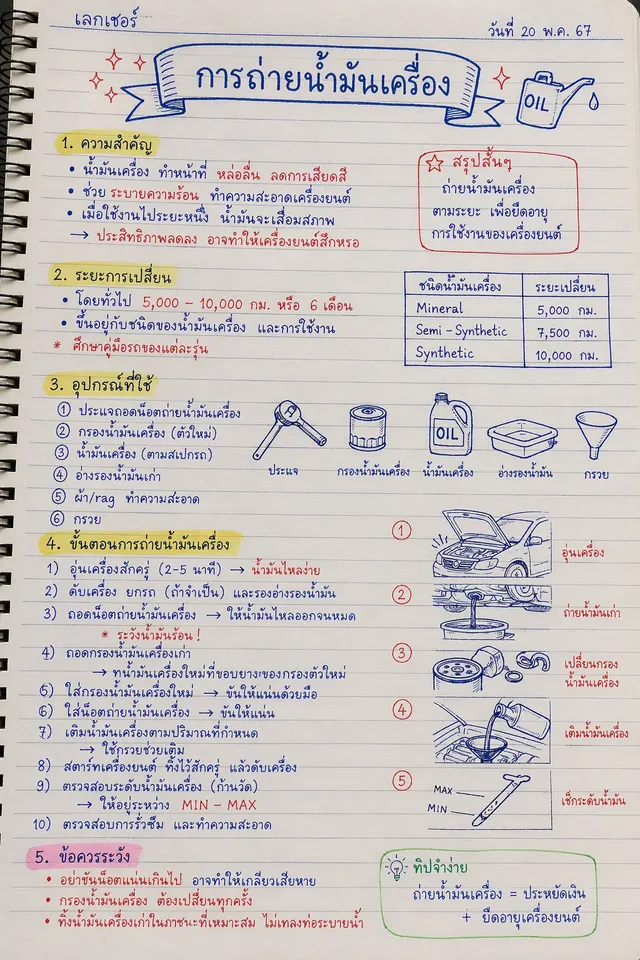 เลกเชอร์
วันที่ 20 พ.ค. 67
การถ่ายน้ำมันเครื่อง
OIL
1. ความสำคัญ
• น้ำมันเครื่อง ทำหน้าที่ หล่อลื่น ลดการเสียดสี
• ช่วย ระบายความร้อน ทำความสะอาดเครื่องยนต์
• เมื่อใช้งานไประยะหนึ่ง น้ำมันจะเสื่อมสภาพ
→ ประสิทธิภาพลดลง อาจทำให้เครื่องยนต์สึกหรอ
☆ สรุปสั้นๆ
ถ่ายน้ำมันเครื่อง
ตามระยะ เพื่อยืดอายุ
การใช้งานของเครื่องยนต์
2. ระยะการเปลี่ยน
• โดยทั่วไป 5,000 – 10,000 กม. หรือ 6 เดือน
• ขึ้นอยู่กับชนิดของน้ำมันเครื่อง และการใช้งาน
* ศึกษาคู่มือรถของแต่ละรุ่น
ชนิดน้ำมันเครื่อง ระยะเปลี่ยน
Mineral 5,000 กม.
Semi-Synthetic 7,500 กม.
Synthetic 10,000 กม.
3. อุปกรณ์ที่ใช้
① ประแจถอดน็อตถ่ายน้ำมันเครื่อง
② กรองน้ำมันเครื่อง (ตัวใหม่)
③ น้ำมันเครื่อง (ตามสเปกรถ)
④ อ่างรองน้ำมันเก่า
⑤ ผ้า/rag ทำความสะอาด
⑥ กรวย
OIL
ประแจ กรองน้ำมันเครื่อง น้ำมันเครื่อง อ่างรองน้ำมัน กรวย
4. ขั้นตอนการถ่ายน้ำมันเครื่อง
1) อุ่นเครื่องสักครู่ (2-5 นาที) → น้ำมันไหลง่าย
2) ดับเครื่อง ยกรถ (ถ้าจำเป็น) และรองอ่างรองน้ำมัน
3) ถอดน็อตถ่ายน้ำมันเครื่อง → ให้น้ำมันไหลออกจนหมด
* ระวังน้ำมันร้อน!
4) ถอดกรองน้ำมันเครื่องเก่า
→ ทน้ำมันเครื่องใหม่ที่ขอบยางของกรองตัวใหม่
5) ใส่กรองน้ำมันเครื่องใหม่ → ขันให้แน่นด้วยมือ
6) ใส่น็อตถ่ายน้ำมันเครื่อง → ขันให้แน่น
7) เติมน้ำมันเครื่องตามปริมาณที่กำหนด
→ ใช้กรวยช่วยเติม
8) สตาร์ทเครื่องยนต์ ทิ้งไว้สักครู่ แล้วดับเครื่อง
9) ตรวจสอบระดับน้ำมันเครื่อง (ก้านวัด)
→ ให้อยู่ระหว่าง MIN – MAX
10) ตรวจสอบการรั่วซึม และทำความสะอาด
① อุ่นเครื่อง
② ถ่ายน้ำมันเก่า
③ เปลี่ยนกรอง
น้ำมันเครื่อง
④ เติมน้ำมันเครื่อง
⑤ MAX
MIN
เช็กระดับน้ำมัน
5. ข้อควรระวัง
• อย่าขันน็อตแน่นเกินไป อาจทำให้เกลียวเสียหาย
• กรองน้ำมันเครื่อง ต้องเปลี่ยนทุกครั้ง
• ทิ้งน้ำมันเครื่องเก่าในภาชนะที่เหมาะสม ไม่เทลงท่อระบายน้ำ
ทิปจำง่าย
ถ่ายน้ำมันเครื่อง = ประหยัดเงิน
+ ยืดอายุเครื่องยนต์